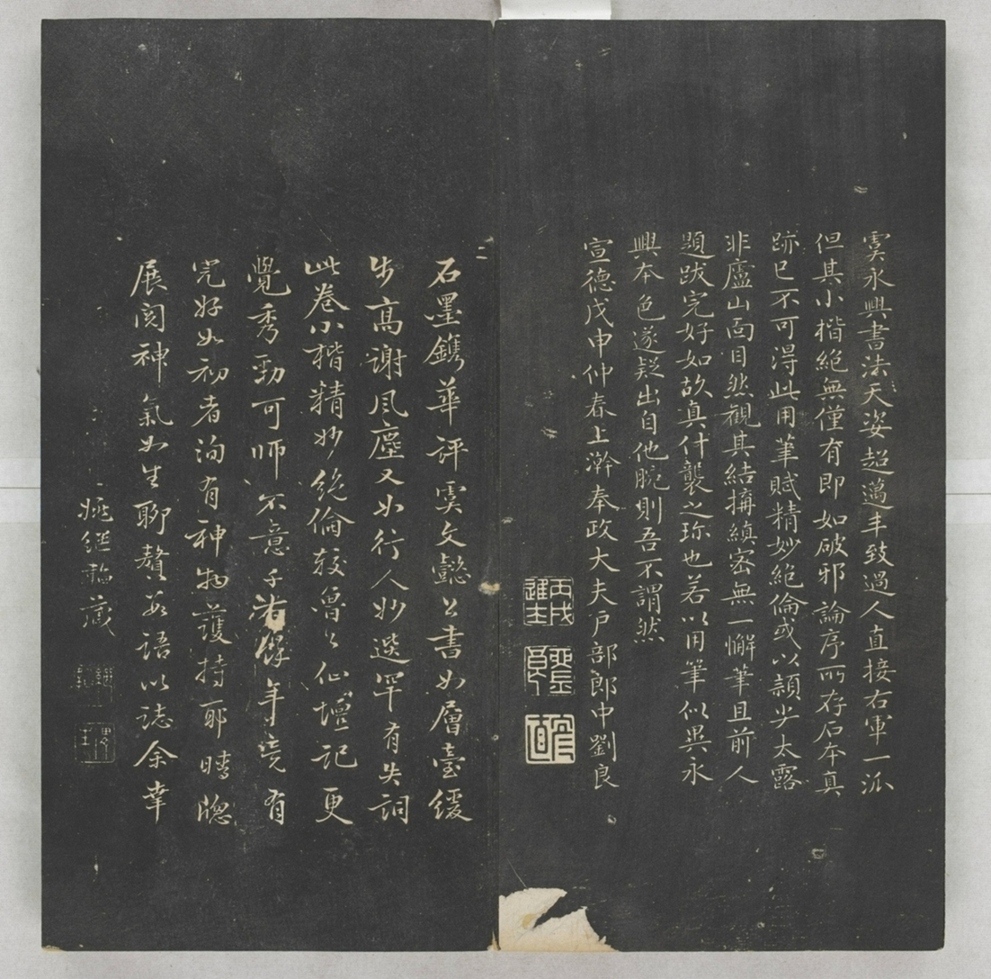 虞永興書法天姿超邁丰致過人直接右軍一派
但其小楷絕無僅有即如破邪論序所存石本真
跡已不可得此用筆賦精妙絕倫或以頴尖太露
非廬山面目然觀其結搆縝密無一懈筆且前人
題跋完好如故真什襲之珎也若以用筆似異永
興本色遂疑出自他腕則吾不謂然
宣德戊申仲春上澣奉政大夫戶部郎中劉良
丙戌進士
二
石墨鐫華評虞文懿公書如層臺緩
步高謝風塵又如行人妙選罕有失詞
此卷小楷精妙絕倫較魯公仙壇記更
覺秀勁可師不意千年竟有
完好如初者洵有神物護持耶晴牕
展閱神氣如生聊贅數語以誌余幸